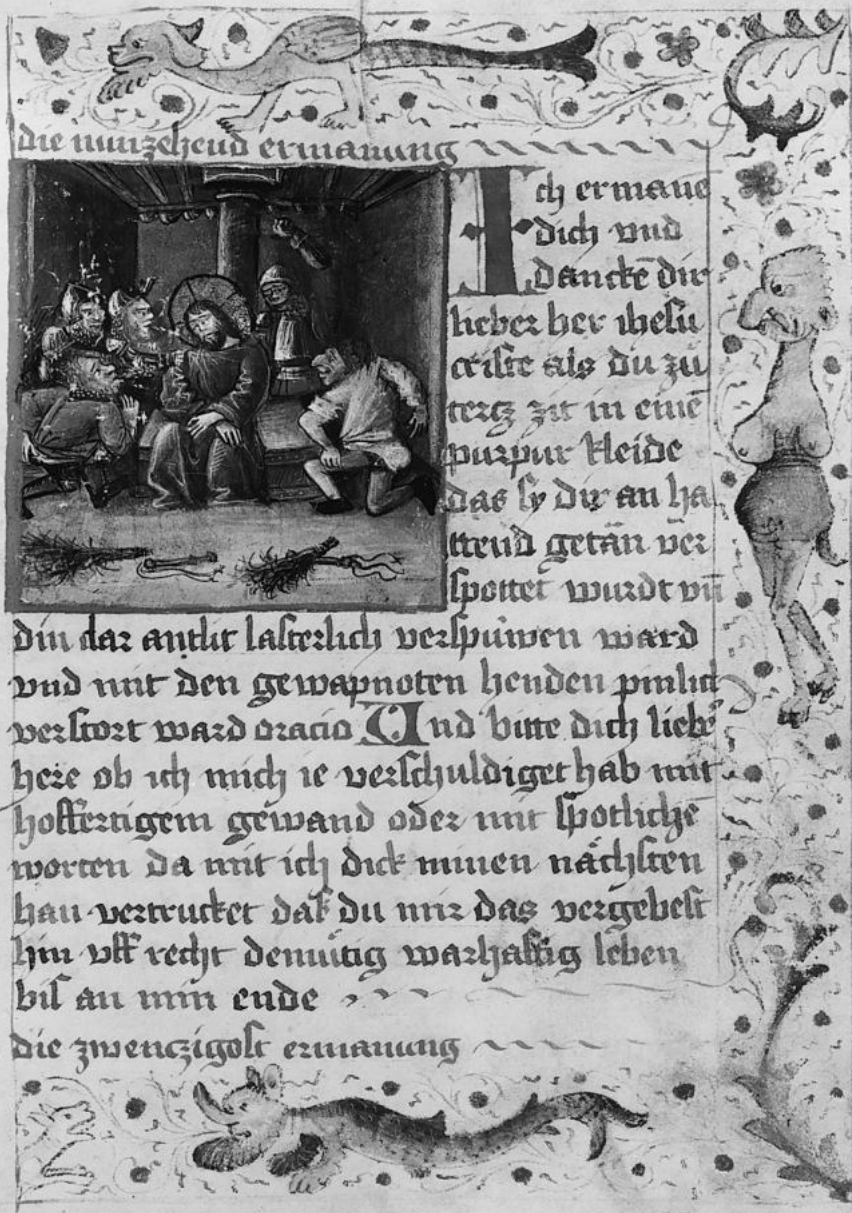 die nunzehend ermanung
Ich ermane
dich vnd
danckē dir
lieber her ihesu
criste als du zů
tercz zit in einē
purpur kleide
das sy dir an ha
ttend getān ver
spottet wurdt vn̄
din clar antlit lasterlich verspúwen ward
vnd mit den gewapnoten henden pinlich
verstort ward oracio Und bitte dich lieb
here ob ich mich ie verschuldiget hab mit
hoffertigem gewand oder mit spotlichē
worten da mit ich dick minen nāchsten
han vertrucket das du mir das vergebest
hin vff recht demůtig warhafftig leben
bis an min ende
die zwenczigost ermanung